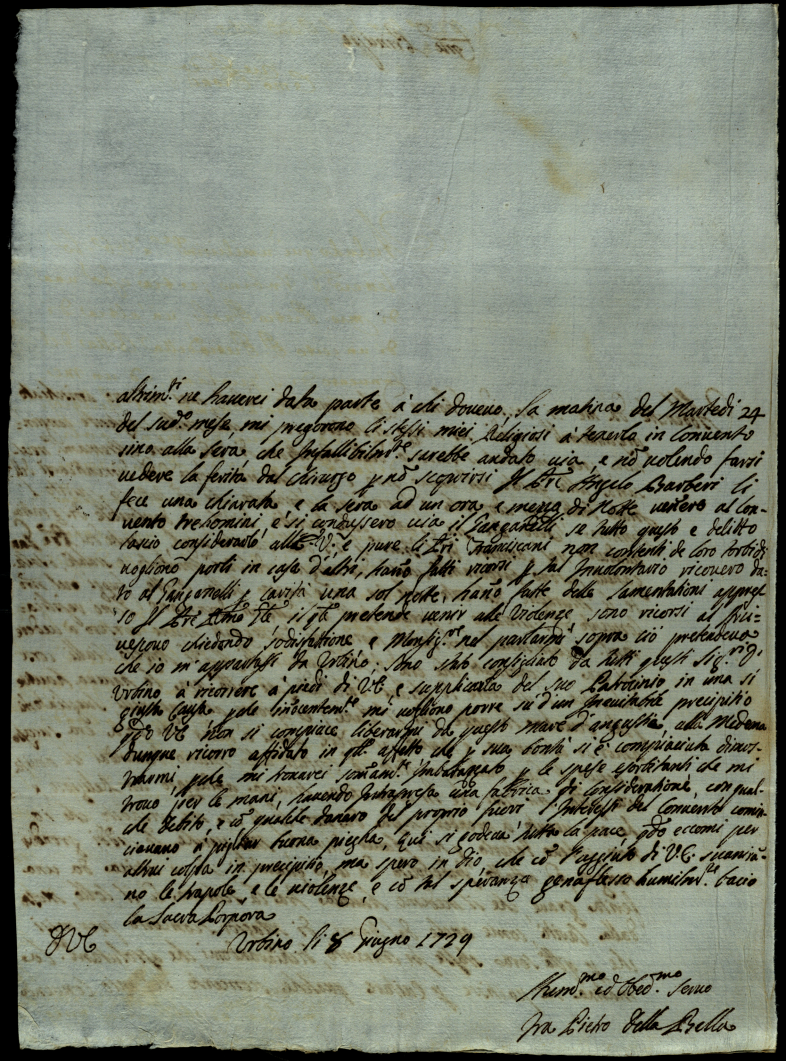 altrim.ti ne haverei data parte à chi dovevo. la matina del Martedi 24
del sud.o mese mi pregorono li stessi miei Religiosi à tenerlo in Convento
sino alla sera che Infallibilm.te sarebbe andato via, e nõ volendo farsi
vedere la ferita dal Chirurgo p nõ scoprirsi Il Pre Angelo Barberi li
fece una chiarata, e la sera ad un ora, e mezza di Notte venero al Con-
vento tre homini, e si condussero via il Ganganelli se tutto questo e delitto
lascio considerarlo all' V. E. pure li Pri Franciscani non contenti de loro torbidi
vogliono porli in casa d'altri, hano fatti ricorsi p tal Involontario ricovero da-
to al Ganganelli p carità una sol notte, hano fatte delle lamentationi appres-
so Il Pre il qle pretende venir alle Violenze, sono ricorsi al Arci-
vescovo chiedendo sodisfattione e Monsig.re nel parlarmi sopra ciò pretendeva
che io m'appartassi da Urbino; sono stato consigliato da tutti questi Sig.ri d'
Urbino à ricorrere à piedi di V.E. e supplicarla del suo Patrocinio in una si
giusta Causa, p che Innocentem.te mi vogliono porre su d'un Inevitabile precipitio
qdo V.E. non si compiace liberarmi da questo mare d'angustie alla Medema
dunque ricorro affidato in qll' affetto che p sua bontà si è compiaciuta dimos-
trarmi, p che mi trovarei Imbarazzato p le spese esorbitanti che mi
trovo per le mani, havendo Intrapresa una fabrica di Consideratione, con qual-
che debito, e cõ qualche danaro del proprio fuori l'Interessi del Convento comin-
ciavano a pigliar buona piegha, qui si godeva tutta la pace, qdo eccomi per
altrui colpa in precipitio, ma spero in Dio che cõ l'aggiuto di V.E. svanirã-
no le trapole, e le violenze, e cõ tal speranza genuflesso humilm.te bacio
la Sacra Porpora
D V E Urbino li 8 Giugno 1729
ed Obed.mo Servo
fra Pietro della Bella